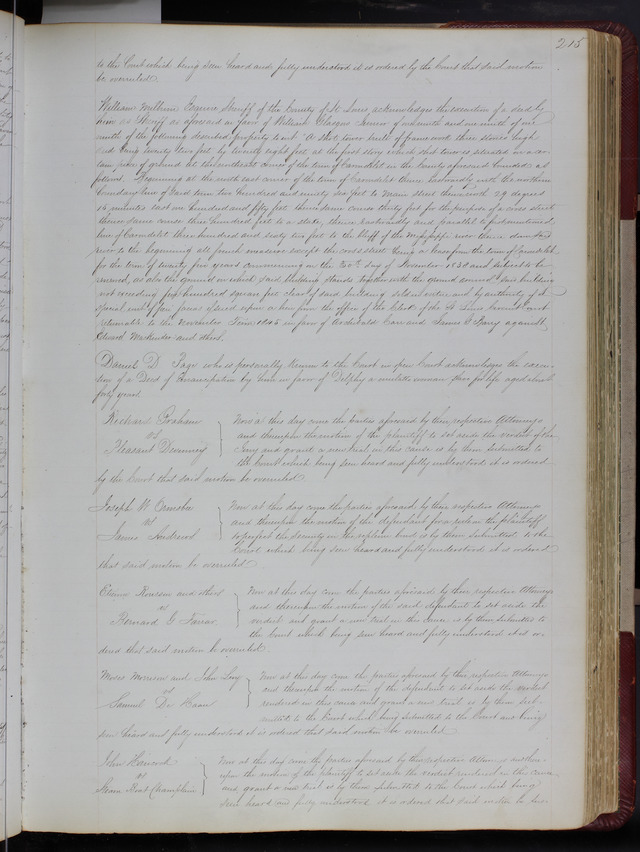 215
to the Court which being seen heard and fully understood it is ordered by the Court that said motion
be overruled.
William Milburn Esquire Sheriff of the County of St Louis acknowledges the execution of a deed by
him as Sheriff as aforesaid in favor of William Glasgow Senior of one ninth and one ninth of one
ninth of the following described property to wit A shot tower built of frame work three stories high
and being twenty two feet by twenty eight feet at the first story which shot tower is situated on a cer
tain piece of ground at the northeast corner of the town of Carondelet in the County aforesaid bounded as
follows Beginning at the north east corner of the town of Carondelet thence westwardly with the northern
boundary line of said town two hundred and ninety six feet to Main street thence north 29 degrees
15 minutes east one hundred and fifty feet thence same course thirty feet for the purpose of a cross street
thence same course three hundred feet to a stake, thence eastwardly and parallel to
line of Carondelet three hundred and sixty two feet to the bluff of the Mississippi river thence down said
river to the beginning all french measure except the cross street being a lease from the town of Carondelet
for the term of twenty five years commencing on the day of November 1830 and to be
renewed, as also the ground on which said building stands together with the ground around said building
not exceeding five hundred square feet clear of said building sold under and by authority of a
special writ of fieri facias issued upon a lien from the office of the Clerk of the St Louis Circuit Court
returnable to the November Term 1845 in favor of Archibald Carr and James against
Edward and others.
Daniel D. Page who is personally known to the Court in open Court acknowledges the execu
tion of a Deed of Emancipation by him in favor of Delphy a mulatto woman for life aged about
forty years
Richard Graham Now at this day come the parties aforesaid by their respective Attorneys
vs and thereupon the motion of the plaintiff to set aside the verdict of the
Pleasant Jury and grant a new trial in this cause is by them submitted to
the Court which being seen heard and fully understood it is ordered
by the Court that said motion be overruled.
Joseph W. Now at this day come the parties aforesaid by their respective Attorneys
vs and thereupon the motion of the defendant for a rule on the plaintiff
James Andrews to perfect the security in the replevin bond is by them submitted to the
Court which being seen heard and fully understood it is ordered
that said motion be overruled.
and others Now at this day come the parties aforesaid by their respective Attorneys
vs and thereupon the motion of the said defendant to set aside the
Bernard G Farrar. verdict and grant a new trial in this cause, is by them submitted to
the Court which being seen heard and fully understood it is or
dered that said motion be overruled.
Moses Morrison and John Now at this day come the parties aforesaid by their respective Attorneys
vs and thereupon the motion of the defendant to set aside the verdict
Samuel De Haven rendered in this cause and grant a new trial is by them sub
mitted to the Court which being submitted to the Court and being
seen heard and fully understood it is ordered that said motion be overruled
John Hancock Now at this day come the parties aforesaid by their respective Attorneys and there
vs upon the motion of the plaintiff to set aside the verdict rendered in this cause
Steam Boat Champlain and grant a new trial is by them submitted to the Court which being
seen heard and fully understood it is ordered that said motion be